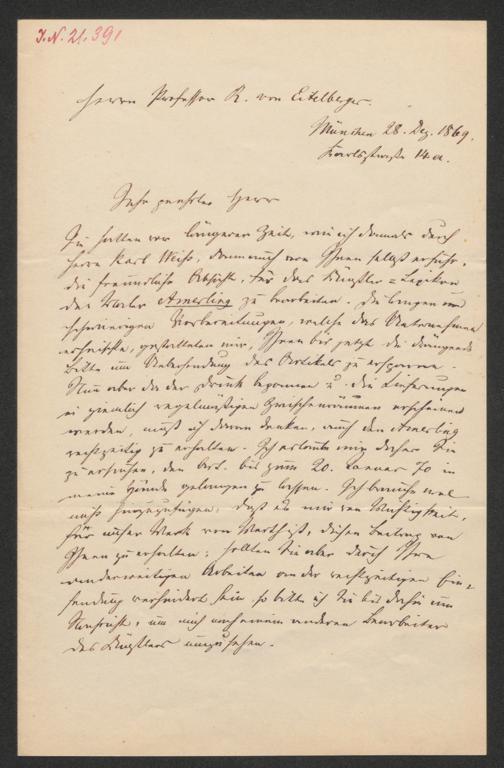 J.N. 21.391
Herrn Professor R. von Eitelberger.
München 28. Dez. 1869.
Karlsstraße 14 a.
Sehr geehrter Herr
Sie hatten vor längerer Zeit, wie ich damals durch
Herrn Karl Weiß, dann auch von Ihnen selbst erfuhr,
die freundliche Absicht, für das Künstler-Lexikon
den Maler Amerling zu bearbeiten. Die langen und
schwierigen Vorbereitungen, welche das Unternehmen
erheischte, gestatteten mir, Ihnen bis jetzt die drängende
Bitte um Uebersendung des Artikels zu ersparen.
Nun aber da der Druck begonnen u. die Lieferungen
in ziemlich regelmäßigen Zwischenräumen erscheinen
werden, muß ich daran denken, auch den Amerling
rechtzeitig zu erhalten. Ich erlaube mir daher Sie
zu ersuchen, den Art. bis zum 20. Januar 70 in
meine Hände gelangen zu lassen. Ich brauche wol
nicht hinzuzufügen, daß es mir von Wichtigkeit,
für unser Werk von Werth ist, diesen Beitrag von
Ihnen zu erhalten; sollten Sie aber durch Ihre
anderweitigen Arbeiten an der rechtzeitigen Ein-
sendung verhindert sein, so bitte ich Sie bis dahin um
Nachricht, um mich nach einem anderen Bearbeiter
des Künstlers umzusehen.